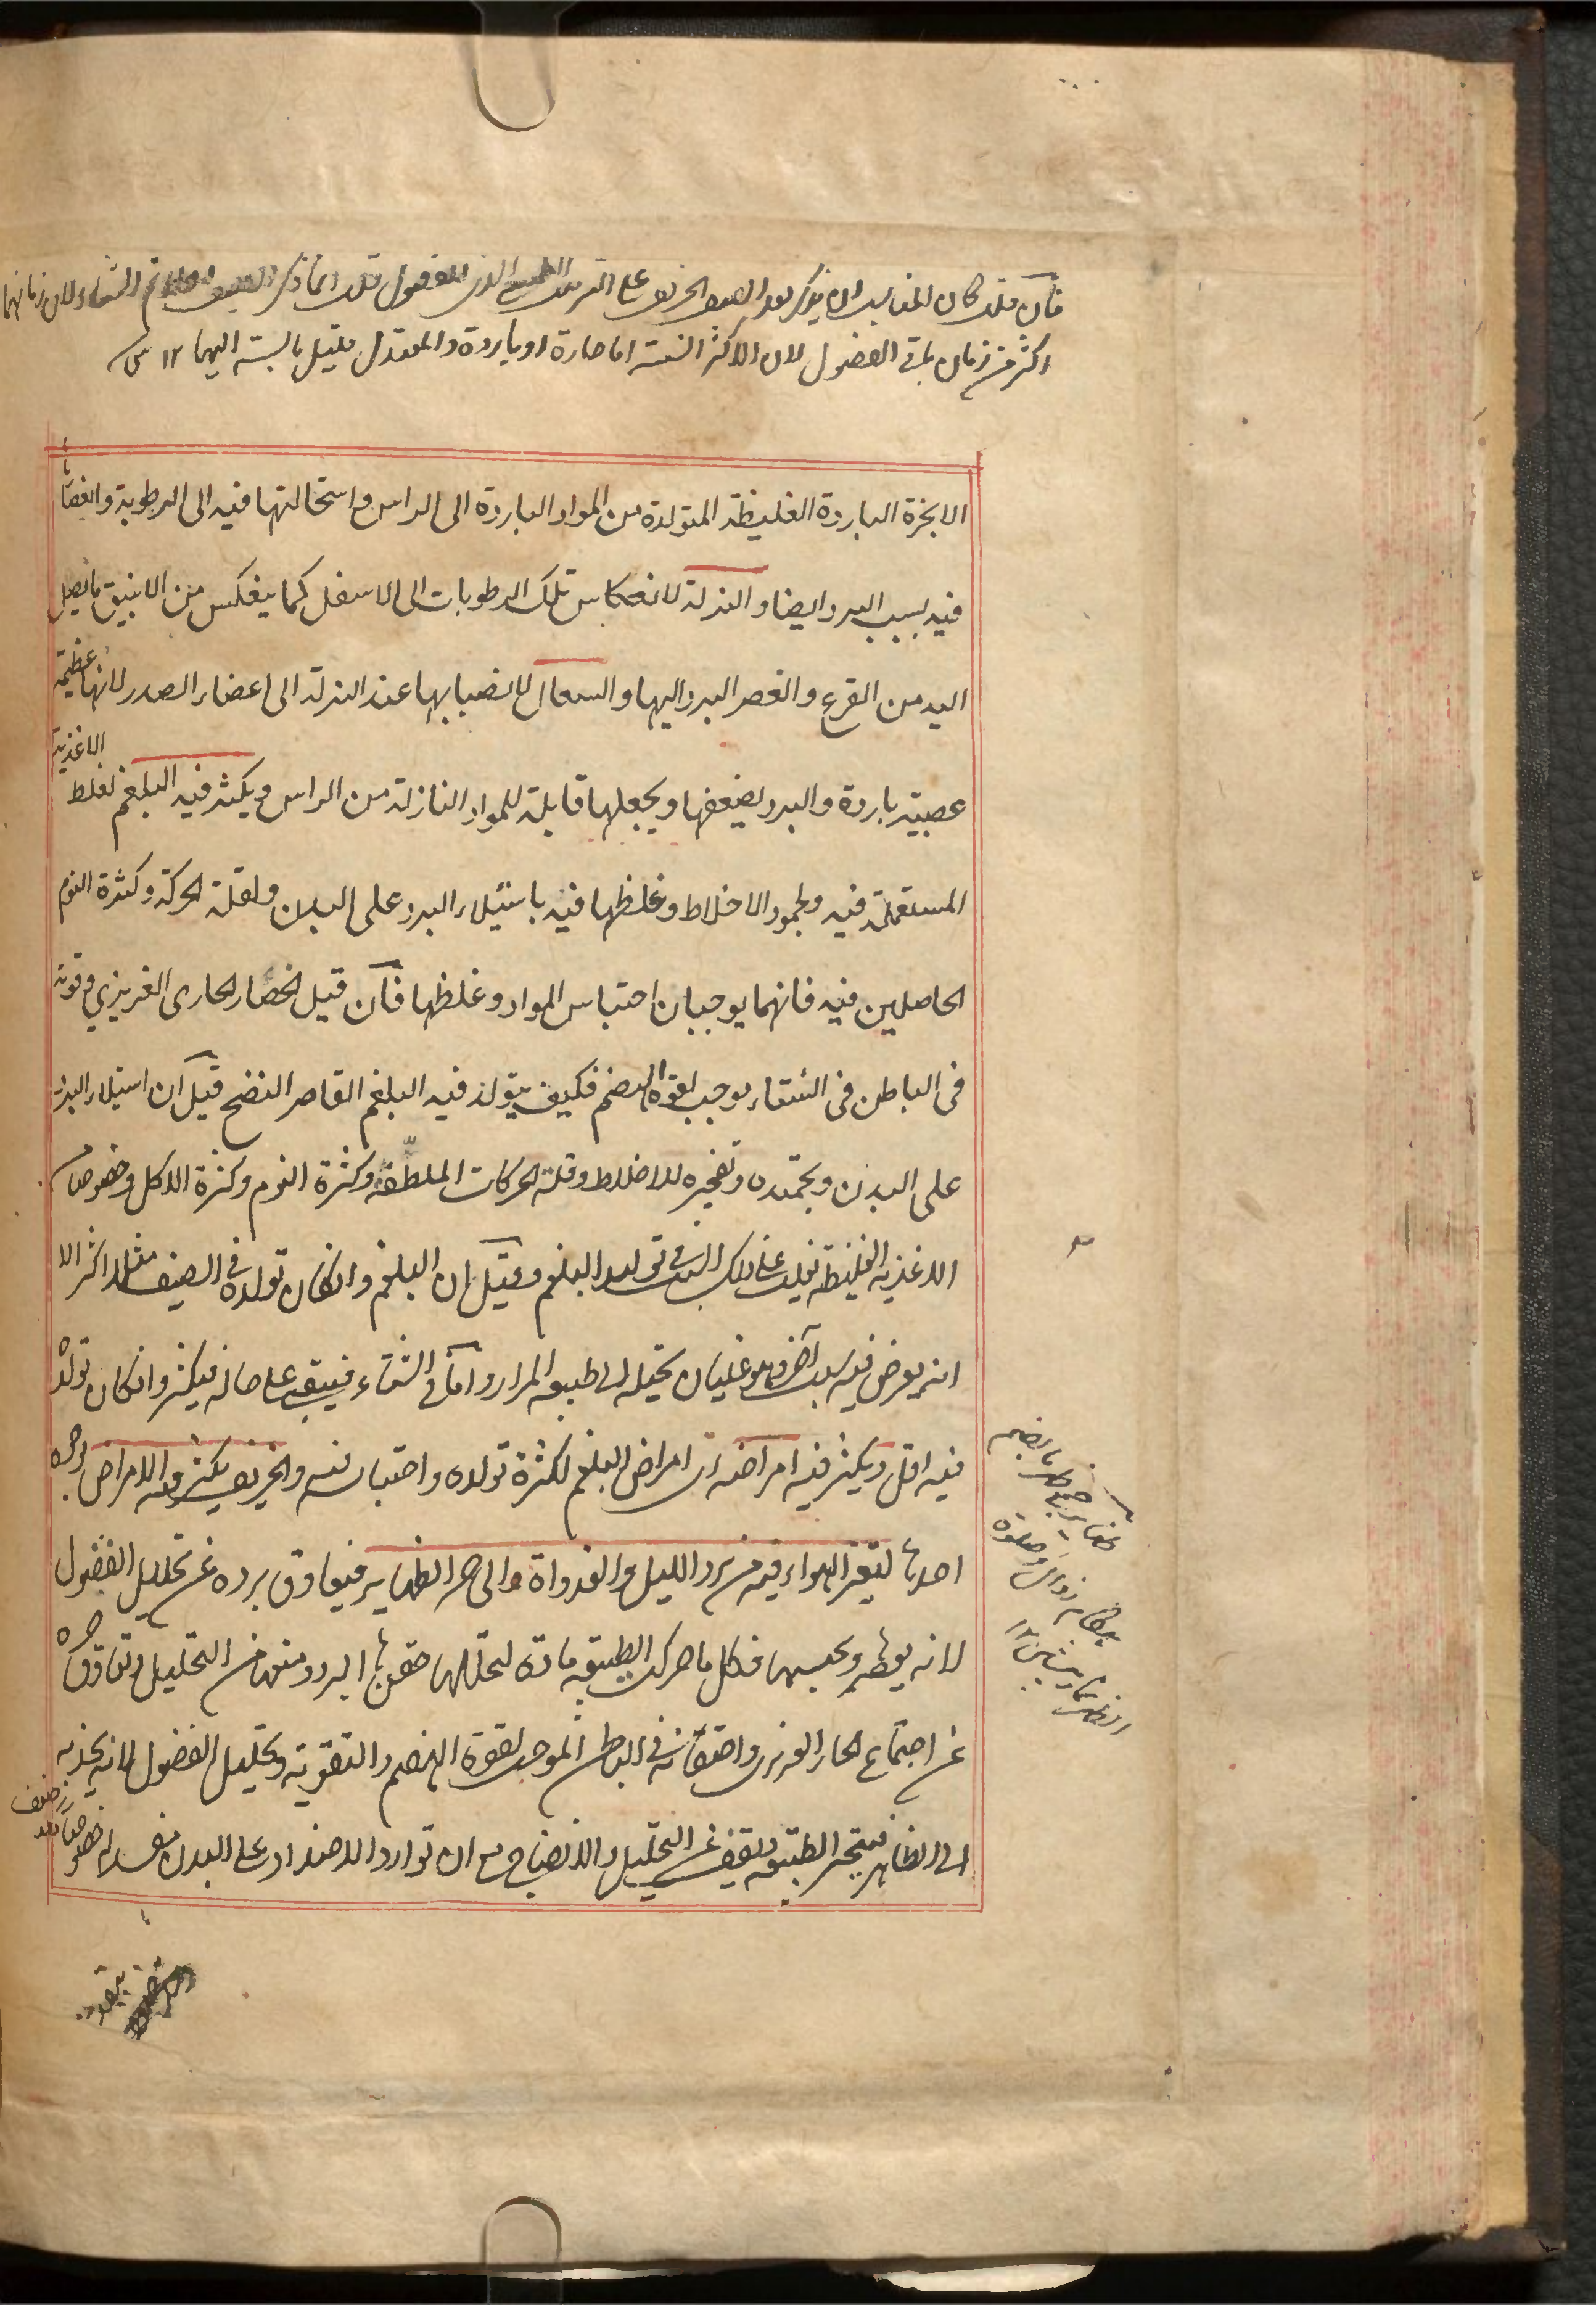 فان قلت كان المناسب ان يذكر بعد الصيف الخريف على الترتيب الطبيعي الذي للفصول قلت انما ذكر الصيف اولا ثم الشتاء لان زمانهما
اكثر من زمان باقي الفصول لان الاكثر السنة اما حارة او باردة والمعتدل قليل بالنسبة اليهما ١٢
الابخرة الباردة الغليظة المتولدة من المواد الباردة الى الراس و استحالتها فيه الى الرطوبة و
فيه بسبب البرد ايضا و النزلة لانعكاس تلك الرطوبات الى الاسفل كما ينعكس من الانبيق ما يصل
اليه من القرع و العصر البرد اليها و السعال لانصبابها عند النزلة الى اعضاء الصدر لانها عظيمة
عصبية باردة و البرد يضعفها و يجعلها قابلة للمواد النازلة من الراس و يكثر فيه البلغم لغلظ الاغذية
المستعملة فيه و لجمود الاخلاط و غلظها فيه باستيلاء البرد على البدن و لقلة الحركة و كثرة النوم
الحاصلين فيه فانهما يوجبان احتباس المواد و غلظها فان قيل انحصار الحار الغريزي و قوته
فى الباطن فى الشتاء يوجب لقوة الهضم فكيف يتولد فيه البلغم القاصر النضج قيل ان استيلاء البرد
على البدن و تجمده و تفجيره للاخلاط و قلة الحركات الملطفة و كثرة النوم و كثرة الاكل و خصوصا
الاغذية الغليظة تغلب على ذلك السبب فى توليد البلغم و قيل ان البلغم و ان كان تولده فى الصيف مثلا اكثر الا
انه يعرض فيه سبب آخر و هو غليان يحيله الى طبيعة المرار و اما فى الشتاء فيبقى على حاله فيكثر و ان كان تولده
فيه اقل و يكثر فيه امراضه اى امراض البلغم لكثرة تولده و احتباسه فيه و الخريف يكثر فيه الامراض لوجوه
احدها لتغير الهواء فيه من برد الليل و الغدواة و الى حر الظهاير فيعاوق برده عن تحليل الفضول
لانه يغلظها و يحبسها فكل ما حركت الطبيعة مادة لتحللها حقنها البرد و منعها من التحليل و تعاوق حره
عن اجتماع الحار الغريزى و احتقانه فى الباطن الموجب لقوة الهضم و التقوية و تحليل الفضول لانه يجذبه
الى الظاهر فتتحير الطبيعة و تقف عن التحليل و الانضاج مع ان توارد الاضداد على البدن مفسد له خصوصا بعد ضعف